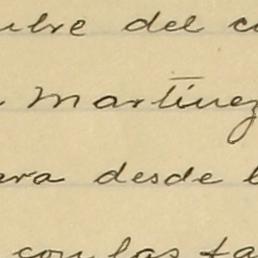 ubre del
Martínez
ara desde
con las